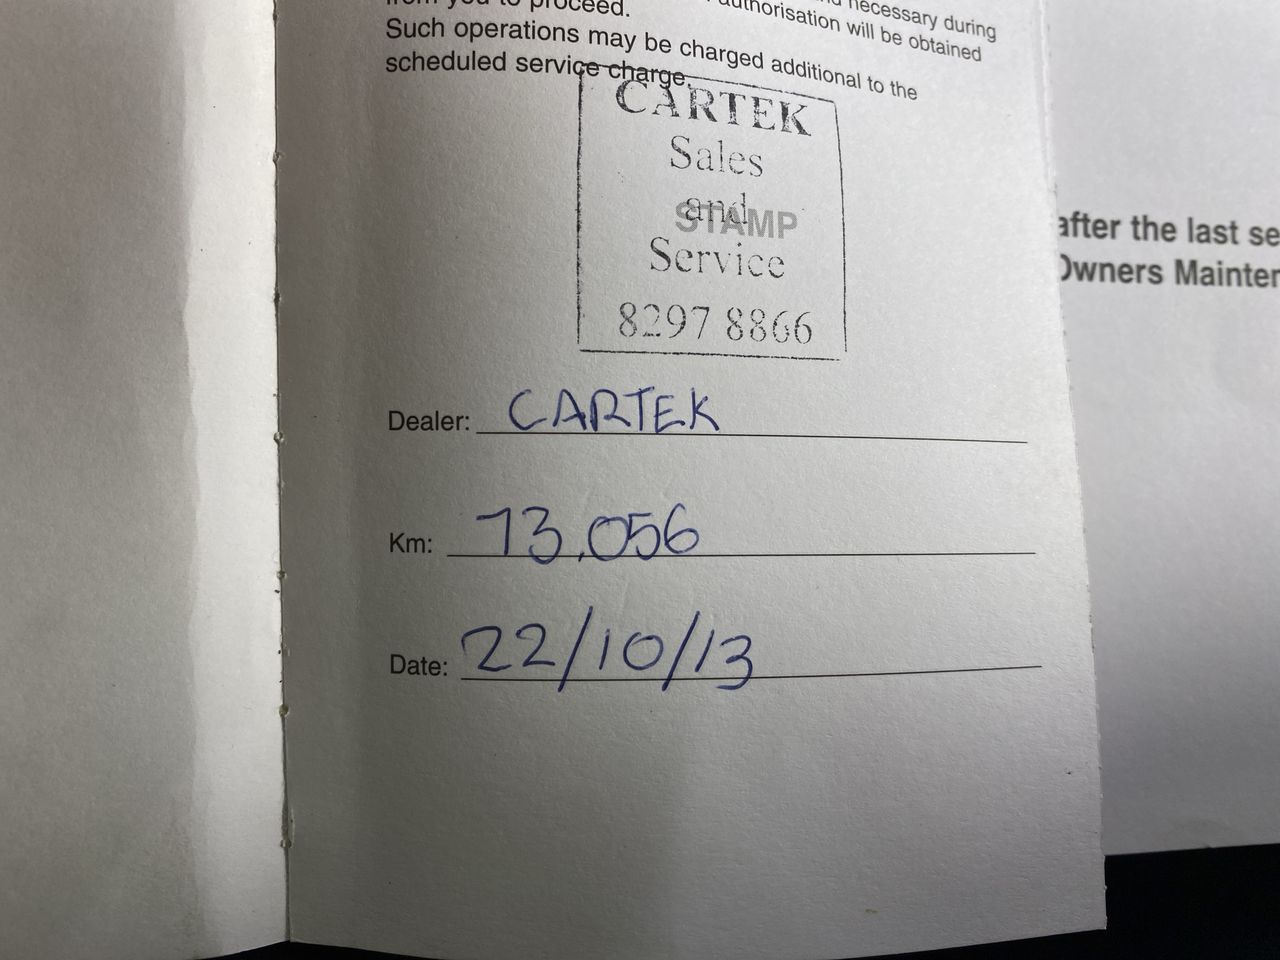 from you to proceed.
necessary during
authorisation will be obtained
Such operations may be charged additional to the
scheduled service charge.
CARTEK
Sales
and
STAMP
Service
8297 8866
Dealer: CARTEK
Km: 73,056
Date: 22/10/13
after the last se
Owners Mainten